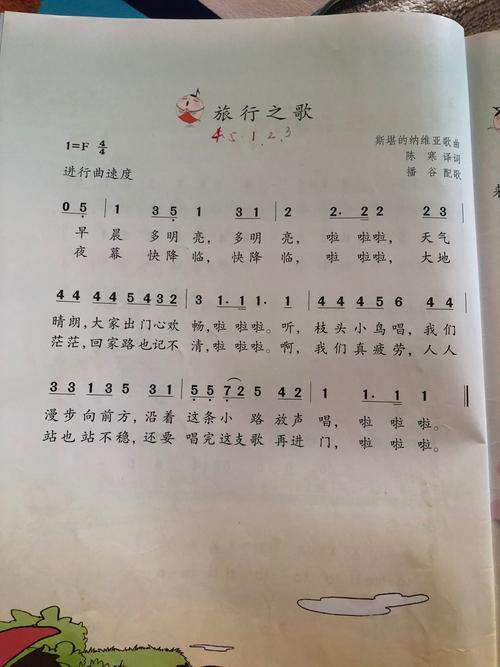 旅行之歌
4 5 · 1 . 2 . 3
1=F 4/4
斯堪的纳维亚歌曲
陈寒 译词
播谷 配歌
进行曲速度
0 5̣ | 1 3 5̣ 1 3 1 | 2 2· 2 2 2 3 |
早晨多明亮，多明亮，啦啦啦，天气
夜幕快降临，快降临，啦啦啦，大地
4 4 4 4 5 4 3 2 | 3 1· 1 1· 1 | 4 4 4 5 6 4 4 |
晴朗，大家出门心欢畅，啦啦啦。听，枝头小鸟唱，我们
茫茫，回家路也记不清，啦啦啦。啊，我们真疲劳，人人
3 3 1 3 5 5 1 | 5̣ 5̣ 7̣ 2 5 4 2 | 1 1· 1 1 ‖
漫步向前方，沿着这条小路放声唱，啦啦啦。
站也站不稳，还要唱完这支歌再进门，啦啦啦。